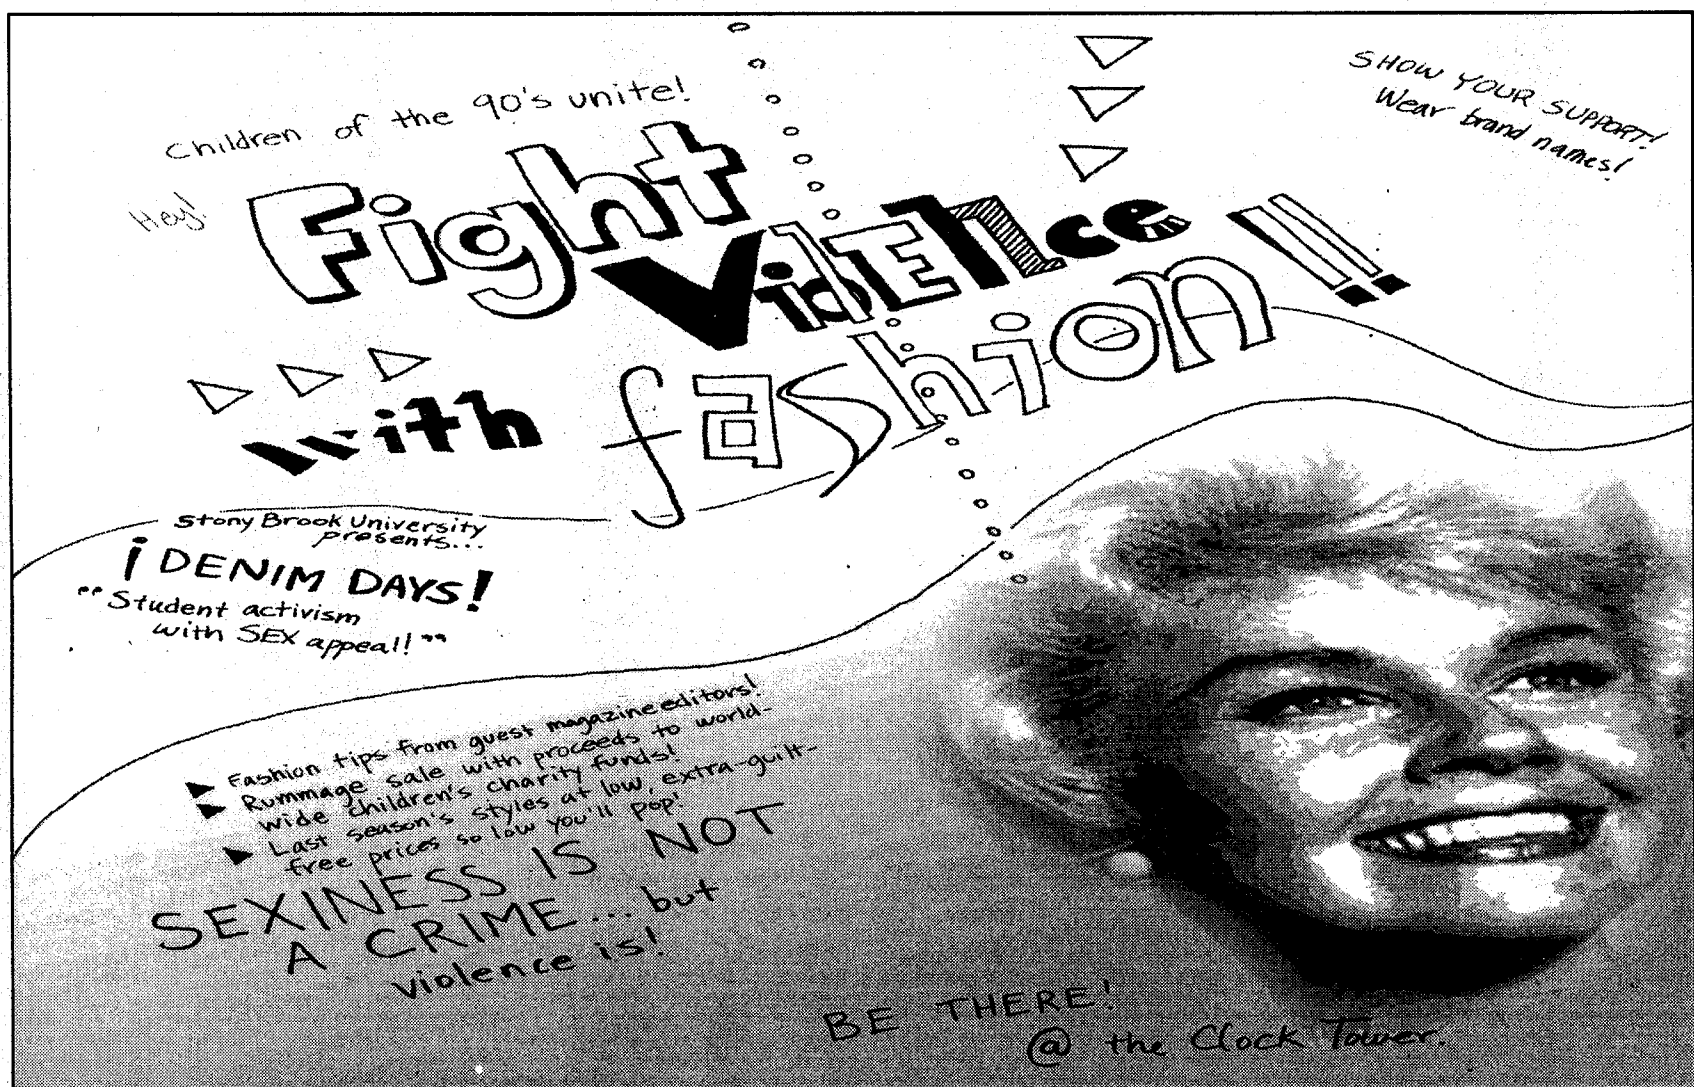 Children of the 90's unite!
SHOW YOUR SUPPORT!
Wear brand names!
Hey!
Fight
VioLENce
with fashion!!
Stony Brook University
presents...
¡DENIM DAYS!
"Student activism
with SEX appeal!"
Fashion tips from guest magazine editors!
Rummage sale with proceeds to world-
wide children's charity funds!
Last season's styles at low, extra-guilt-
free prices so low you'll pop!
SEXINESS IS NOT
A CRIME... but
violence is!
BE THERE!
@ the Clock Tower.